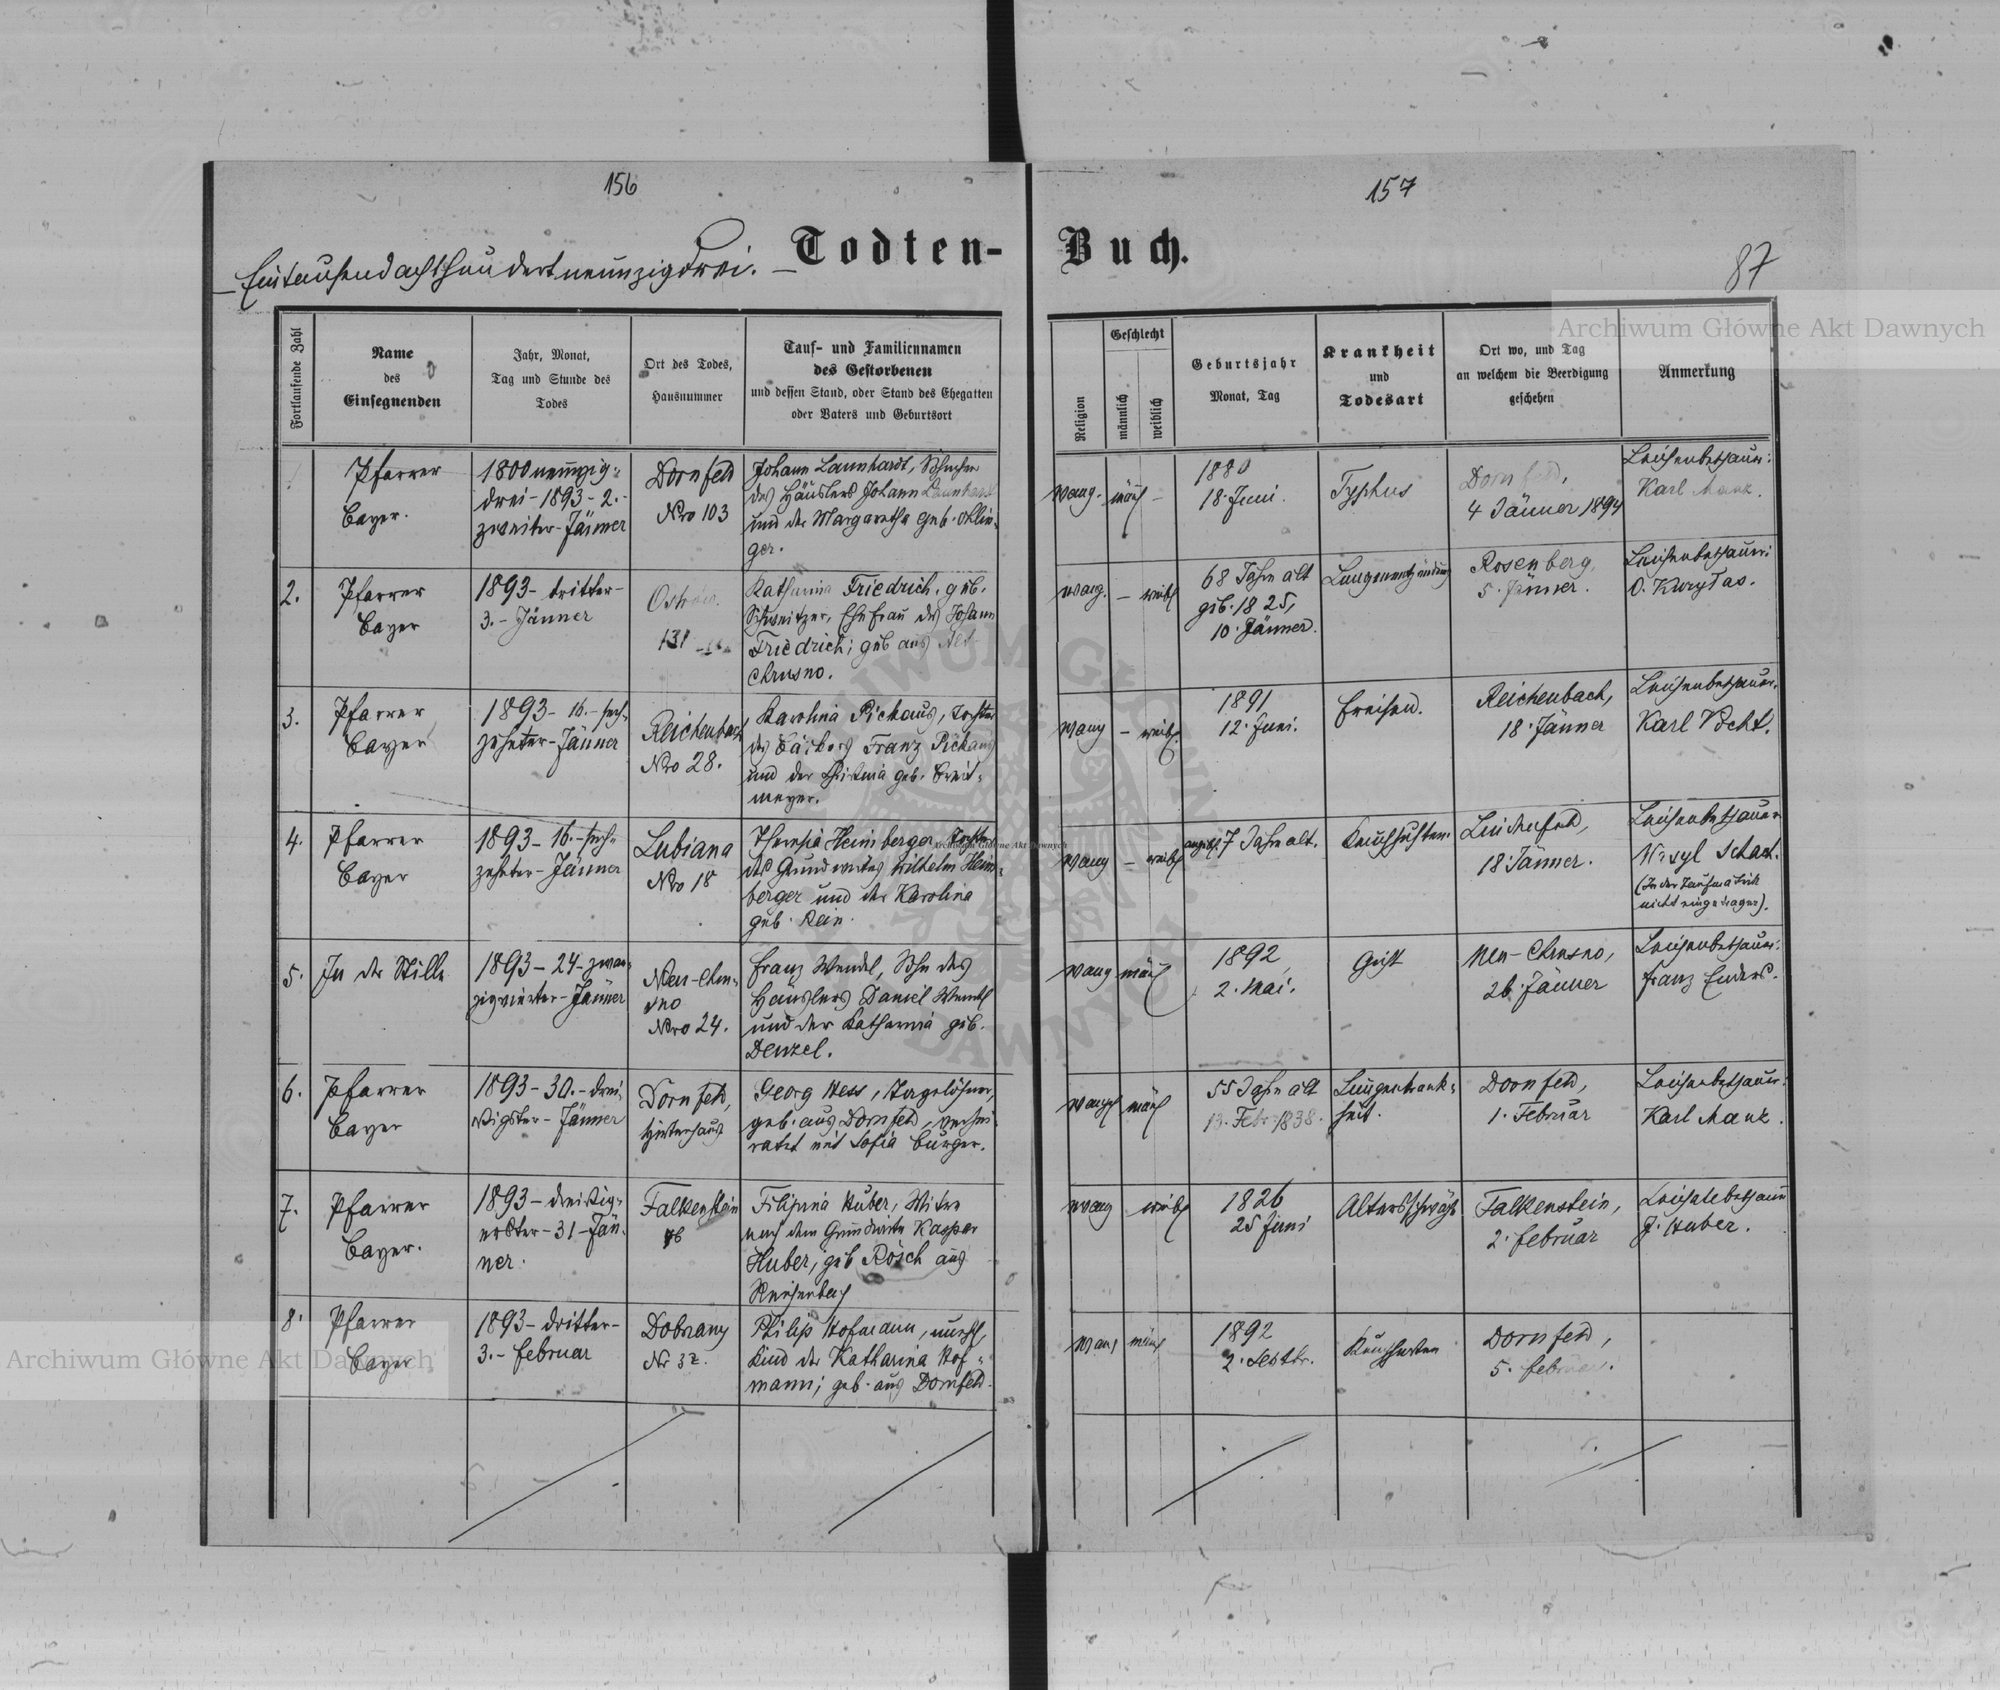 156
157
Eintausendachthundertneunzigdrei.
Todten-Buch.
87
Archiwum Główne Akt Dawnych
Fortlaufende Zahl
Name
des
Einsegnenden
Jahr, Monat,
Tag und Stunde des
Todes
Ort des Todes,
Hausnummer
Tauf- und Familiennamen
des Gestorbenen
und dessen Stand, oder Stand des Ehegatten
oder Vaters und Geburtsort
Religion
Geschlecht
männlich
weiblich
Geburtsjahr
Monat, Tag
Krankheit
und
Todesart
Ort wo, und Tag
an welchem die Beerdigung
geschehen
Anmerkung
Pfarrer
Bayer.
1800neunzig-
drei-1893-2.-
zweiter-Jänner
Dornfeld
Nro 103
Johann Launhardt, Söhnchen
des Häuslers Johann Launhardt
und der Margaretha geb.
ger.
evang. männl -
1880
18. Juni.
Typhus
Dornfeld,
4 Jänner 1894
Leichenbeschauer:
Karl Manz.
2.
Pfarrer
Bayer
1893-dritter-
3.-Jänner
Ostrów.
131
Katharina Friedrich, geb.
Schweitzer, Ehefrau des Johann
Friedrich; geb aus Alt
Chrusno.
evang. - weibl
68 Jahre alt
geb. 1825,
10. Jänner.
Lungenentzündung
Rosenberg,
5. Jänner.
Leichenbeschauer:
O. Kurytas.
3.
Pfarrer
Bayer
1893-16.-sech-
zehnter-Jänner
Reichenbach
Nro 28.
Karolina Pickaus, Tochter
des Bäckers Franz Pickaus
und der Christina geb. Breit-
meyer.
evang - weibl.
1891
12. Juni.
Fraisen.
Reichenbach,
18. Jänner
Leichenbeschauer.
Karl Pecht.
4.
Pfarrer
Bayer
1893-16.-sech-
zehnter-Jänner
Lubiana
Nro 18
Theresia Heinberger Tochter
des Grundwirtes Wilhelm Hein-
berger und der Karolina
geb. Rein.
Archiwum Główne Akt Dawnych
evang - weibl
angebl. 7 Jahre alt.
Keuchhusten.
Lindenfeld,
18 Jänner.
Leichenbeschauer
Wasyl
(In der Taufmatrik
nicht eingetragen).
5.
In der Stille
1893-24-zwan-
zigvierter-Jänner
Neu-Chru-
sno
Nro 24.
Franz Wendel, Sohn des
Häuslers Daniel Wendel
und der Katharina geb.
Denzel.
evang männl
1892
2. Mai.
Gicht
Neu-Chrusno,
26. Jänner
Leichenbeschauer:
Franz Enders.
6.
Pfarrer
Bayer
1893-30.-drei-
ßigster-Jänner
Dornfeld,
Hirtenhaus
Georg Hess, Tagelöhner,
geb. aus Dornfeld, verhei-
ratet mit Sofia Burger.
evangl männl
55 Jahre alt
13. Febr. 1838.
Lungenkrank-
heit.
Dornfeld,
1. Februar
Leichenbeschauer:
Karl Manz.
7.
Pfarrer
Bayer.
1893-dreißig-
erster-31-Jän-
ner.
Falkenstein
Filipina Huber, Witwe
nach dem Grundwirte Kaspar
Huber, geb Rösch aus
Reichenbach
evang weibl
1826
25 Juni
Altersschwäche
Falkenstein,
2. Februar
Leichenbeschauer
J. Huber.
8.
Pfarrer
Bayer
1893-dritter-
3.-Februar
Dobrzany
Nr 32.
Philip Hofmann, unehl,
Kind der Katharina Hof-
mann; geb. aus Dornfeld.
evang männl
1892
2. Septbr.
Keuchhusten
Dornfeld,
5. Februar.
Archiwum Główne Akt Dawnych